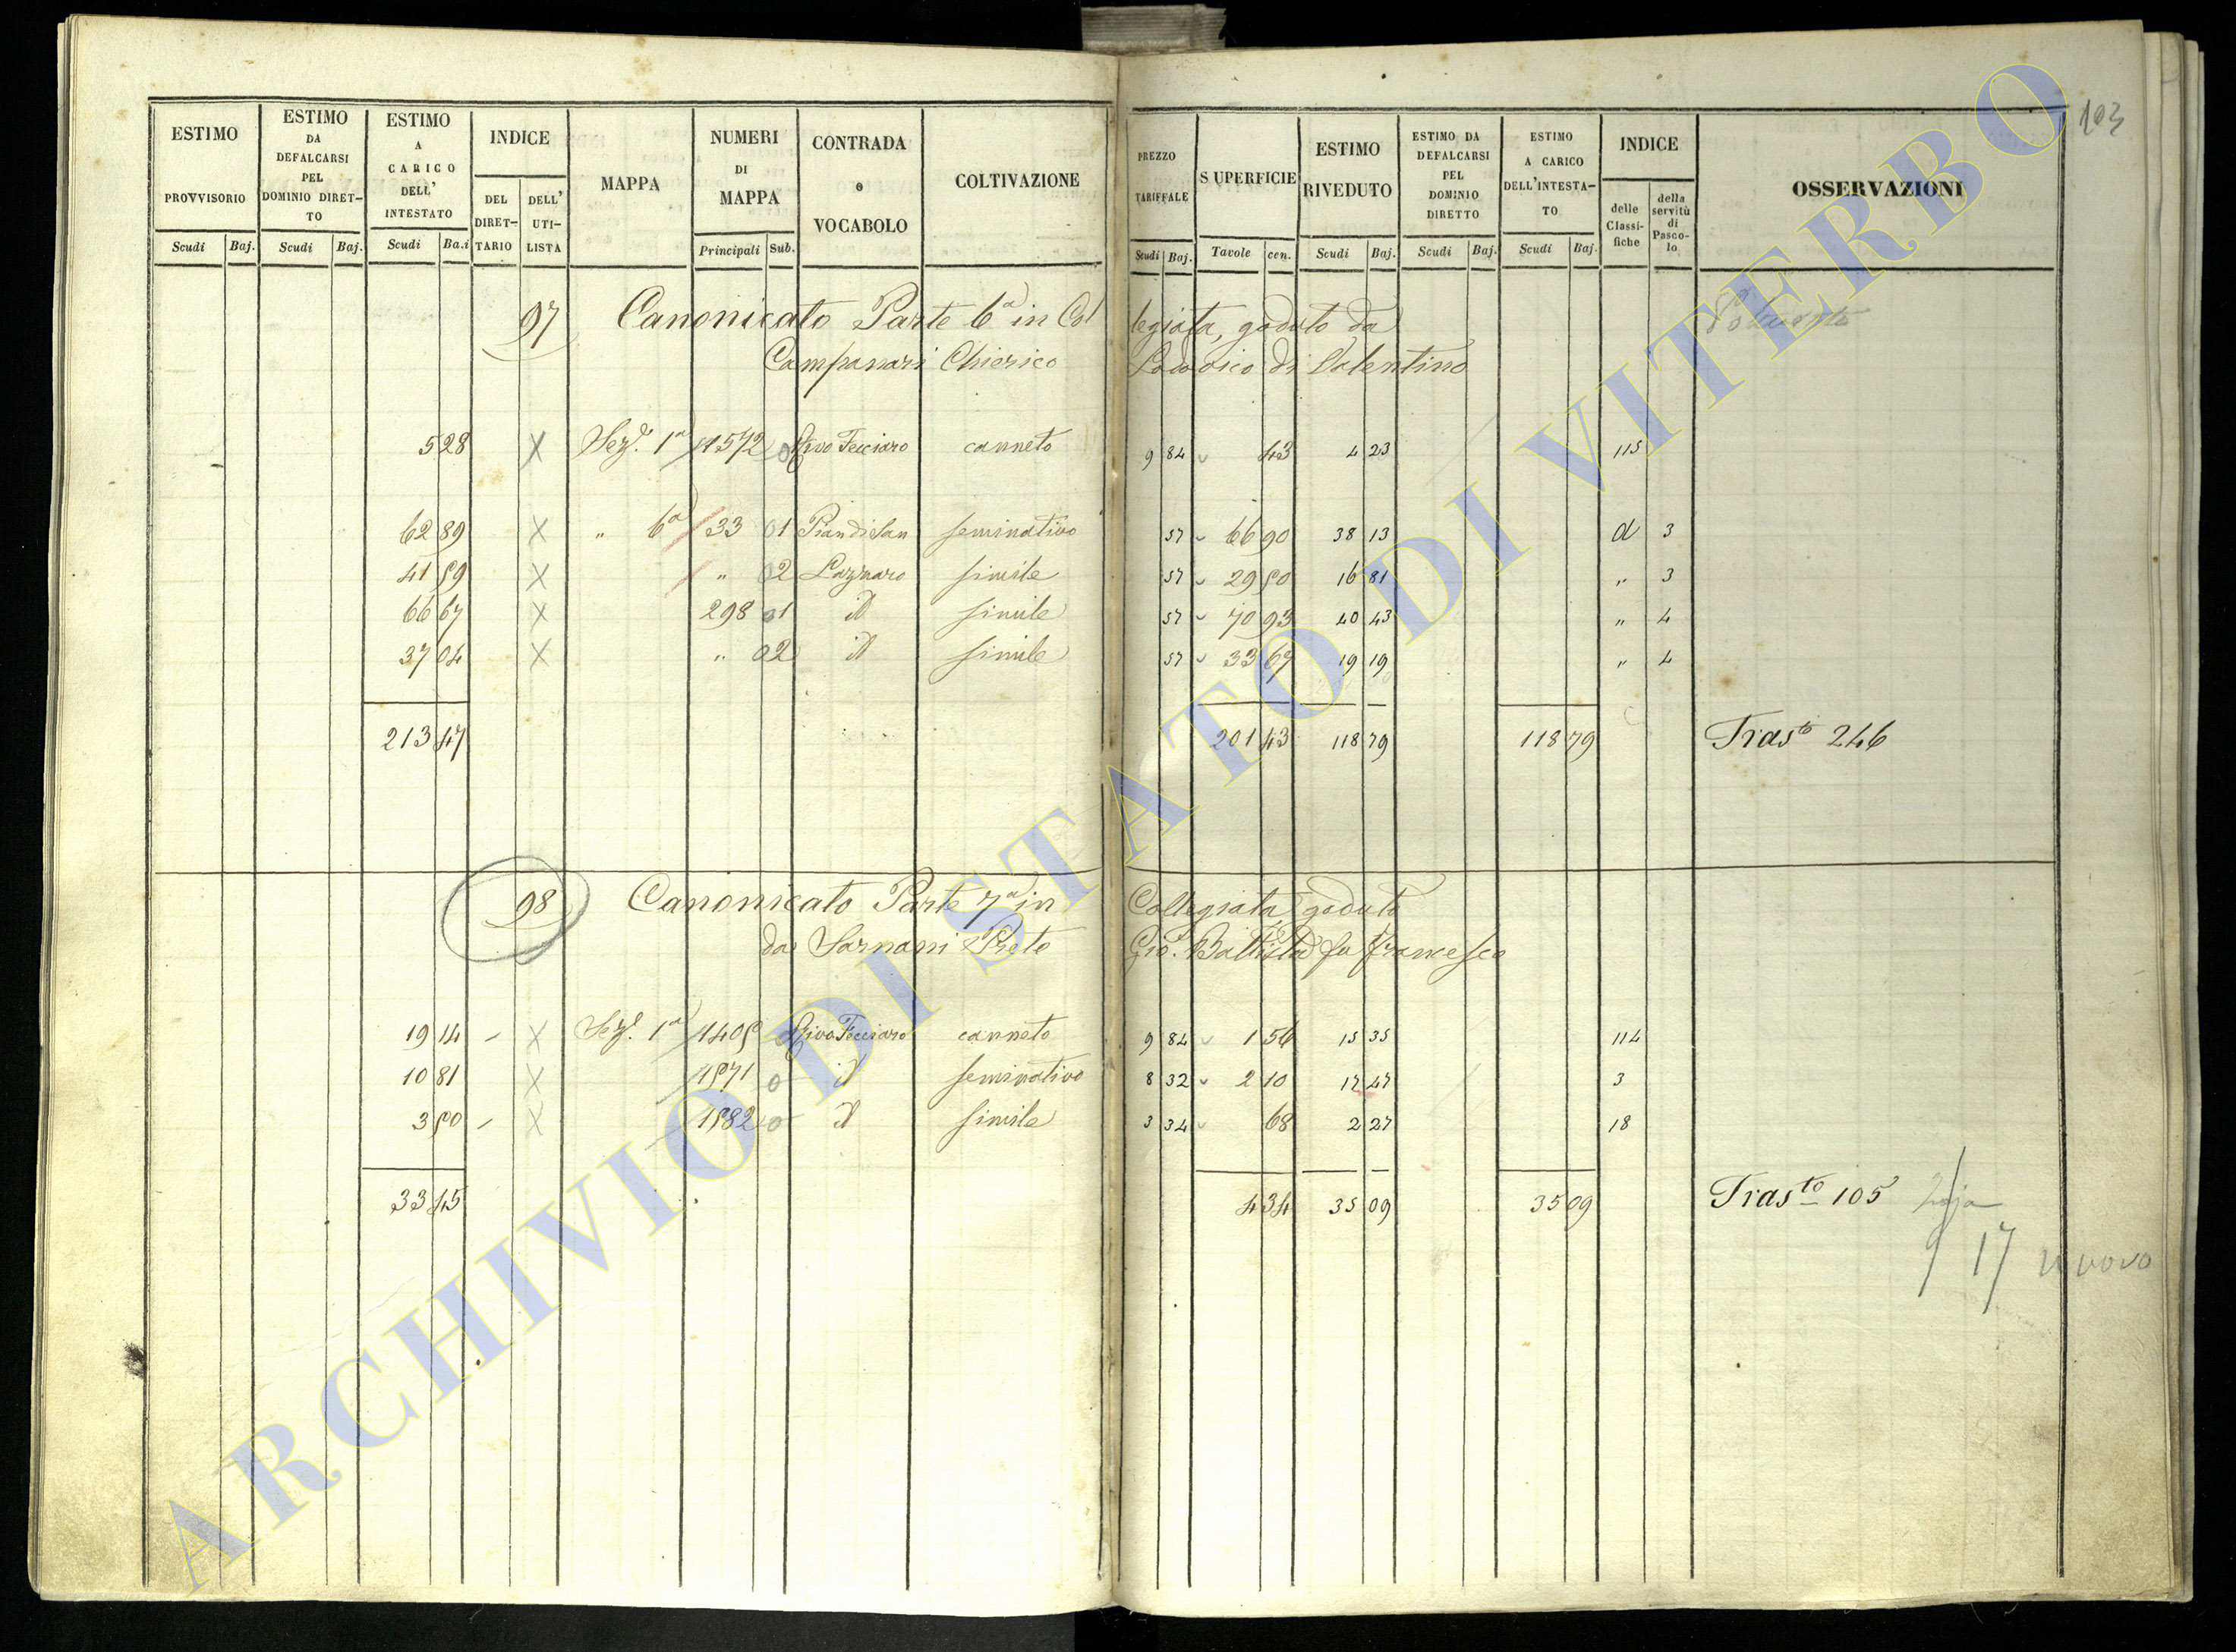 103
ESTIMO PROVVISORIO
ESTIMO DA DEFALCARSI PEL DOMINIO DIRETTO
ESTIMO A CARICO DELL' INTESTATO
INDICE
DEL DIRETTARIO
DELL' UTILISTA
MAPPA
NUMERI DI MAPPA
CONTRADA o VOCABOLO
COLTIVAZIONE
PREZZO TARIFFALE
SUPERFICIE
ESTIMO RIVEDUTO
ESTIMO DA DEFALCARSI PEL DOMINIO DIRETTO
ESTIMO A CARICO DELL'INTESTATO
INDICE
delle Classifiche
della servitù di Pascolo
OSSERVAZIONI
Scudi Baj. Scudi Baj. Scudi Ba.i Principali Sub. Scudi Baj. Tavole cen. Scudi Baj. Scudi Baj. Scudi Baj.
97 Canonicato Parte 6a in Collegiata, goduto da
Campanari Chierico Lodovico di Valentino
5 28 X Sez. 1a 1572 0 Rivo Fecciaro canneto 9 84 43 4 23 115
62 89 X " 6a 33 01 Pian di San seminativo 57 66 90 38 13 a 3
41 59 X " 02 Lazzaro simile 57 29 50 16 81 " 3
66 67 X 298 01 id simile 57 70 93 40 43 " 4
37 04 X " 02 id simile 57 33 67 19 19 " 4
213 47 201 43 118 79 118 79 Trasto 246
98 Canonicato Parte 7a in Collegiata goduto
da Sarnani Prete Gio. Battista fu Francesco
19 14 - X Sez. 1a 1405 0 Rivo Fecciaro canneto 9 84 1 56 15 35 114
10 81 X 1571 0 id seminativo 8 32 2 10 17 47 3
3 50 - X 1582 0 id simile 3 34 68 2 27 18
33 45 4 34 35 09 35 09 Trasto 105
17 nuovo
ARCHIVIO DI STATO DI VITERBO